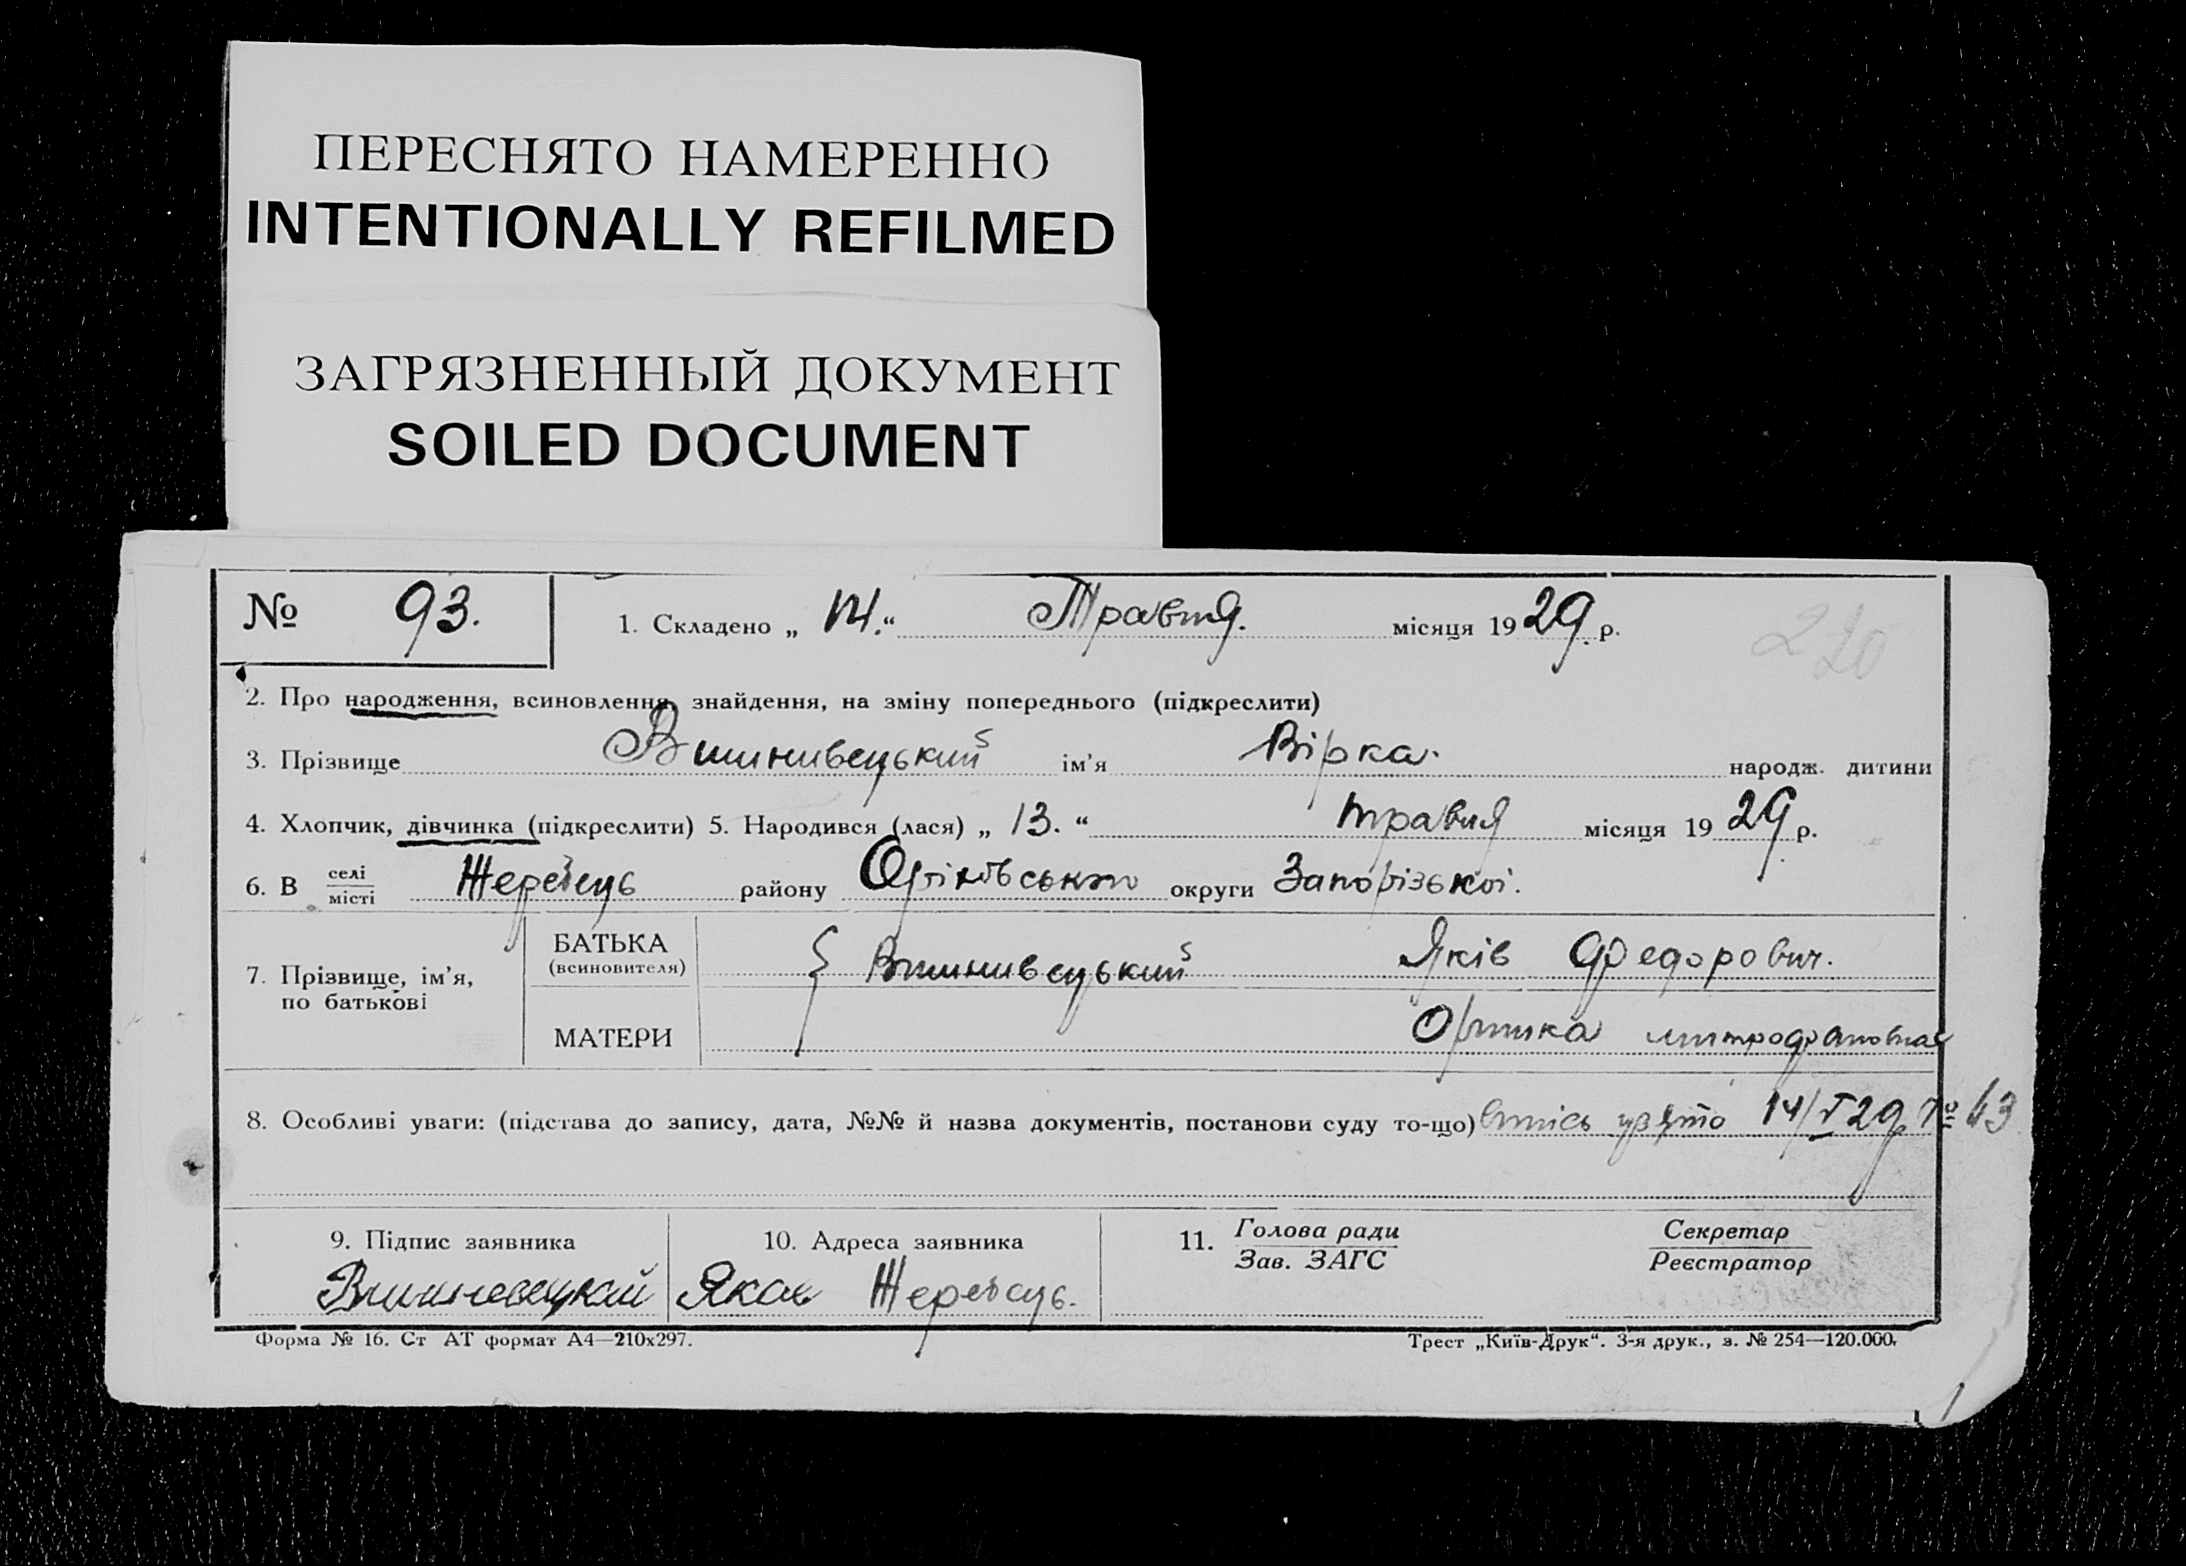 ПЕРЕСНЯТО НАМЕРЕННО
INTENTIONALLY REFILMED
ЗАГРЯЗНЕННЫЙ ДОКУМЕНТ
SOILED DOCUMENT
№ 93. 1. Складено „ 14. “ Травня. місяця 1929 р. 220
2. Про народження, всиновлення, знайдення, на зміну попереднього (підкреслити)
3. Прізвище Вишнивецький ім’я Вірка. народж. дитини
4. Хлопчик, дівчинка (підкреслити) 5. Народився (лася) „ 13. “ травня місяця 1929 р.
6. В селі/місті Жеребець району Оріхівського округи Запорізької.
7. Прізвище, ім’я, по батькові
БАТЬКА (всиновителя) Вишнивецький Яків Федорович.
МАТЕРИ Оришка митрофановна
8. Особливі уваги: (підстава до запису, дата, №№ й назва документів, постанови суду то-що) витіс узято 14/V 29 № 43
9. Підпис заявника 10. Адреса заявника 11. Голова ради / Зав. ЗАГС Секретар / Реєстратор
Вишневецкий Яков Жеребець.
Форма № 16. Ст АТ формат А4—210х297. Трест „Київ-Друк“. 3-я друк., з. № 254—120.000.